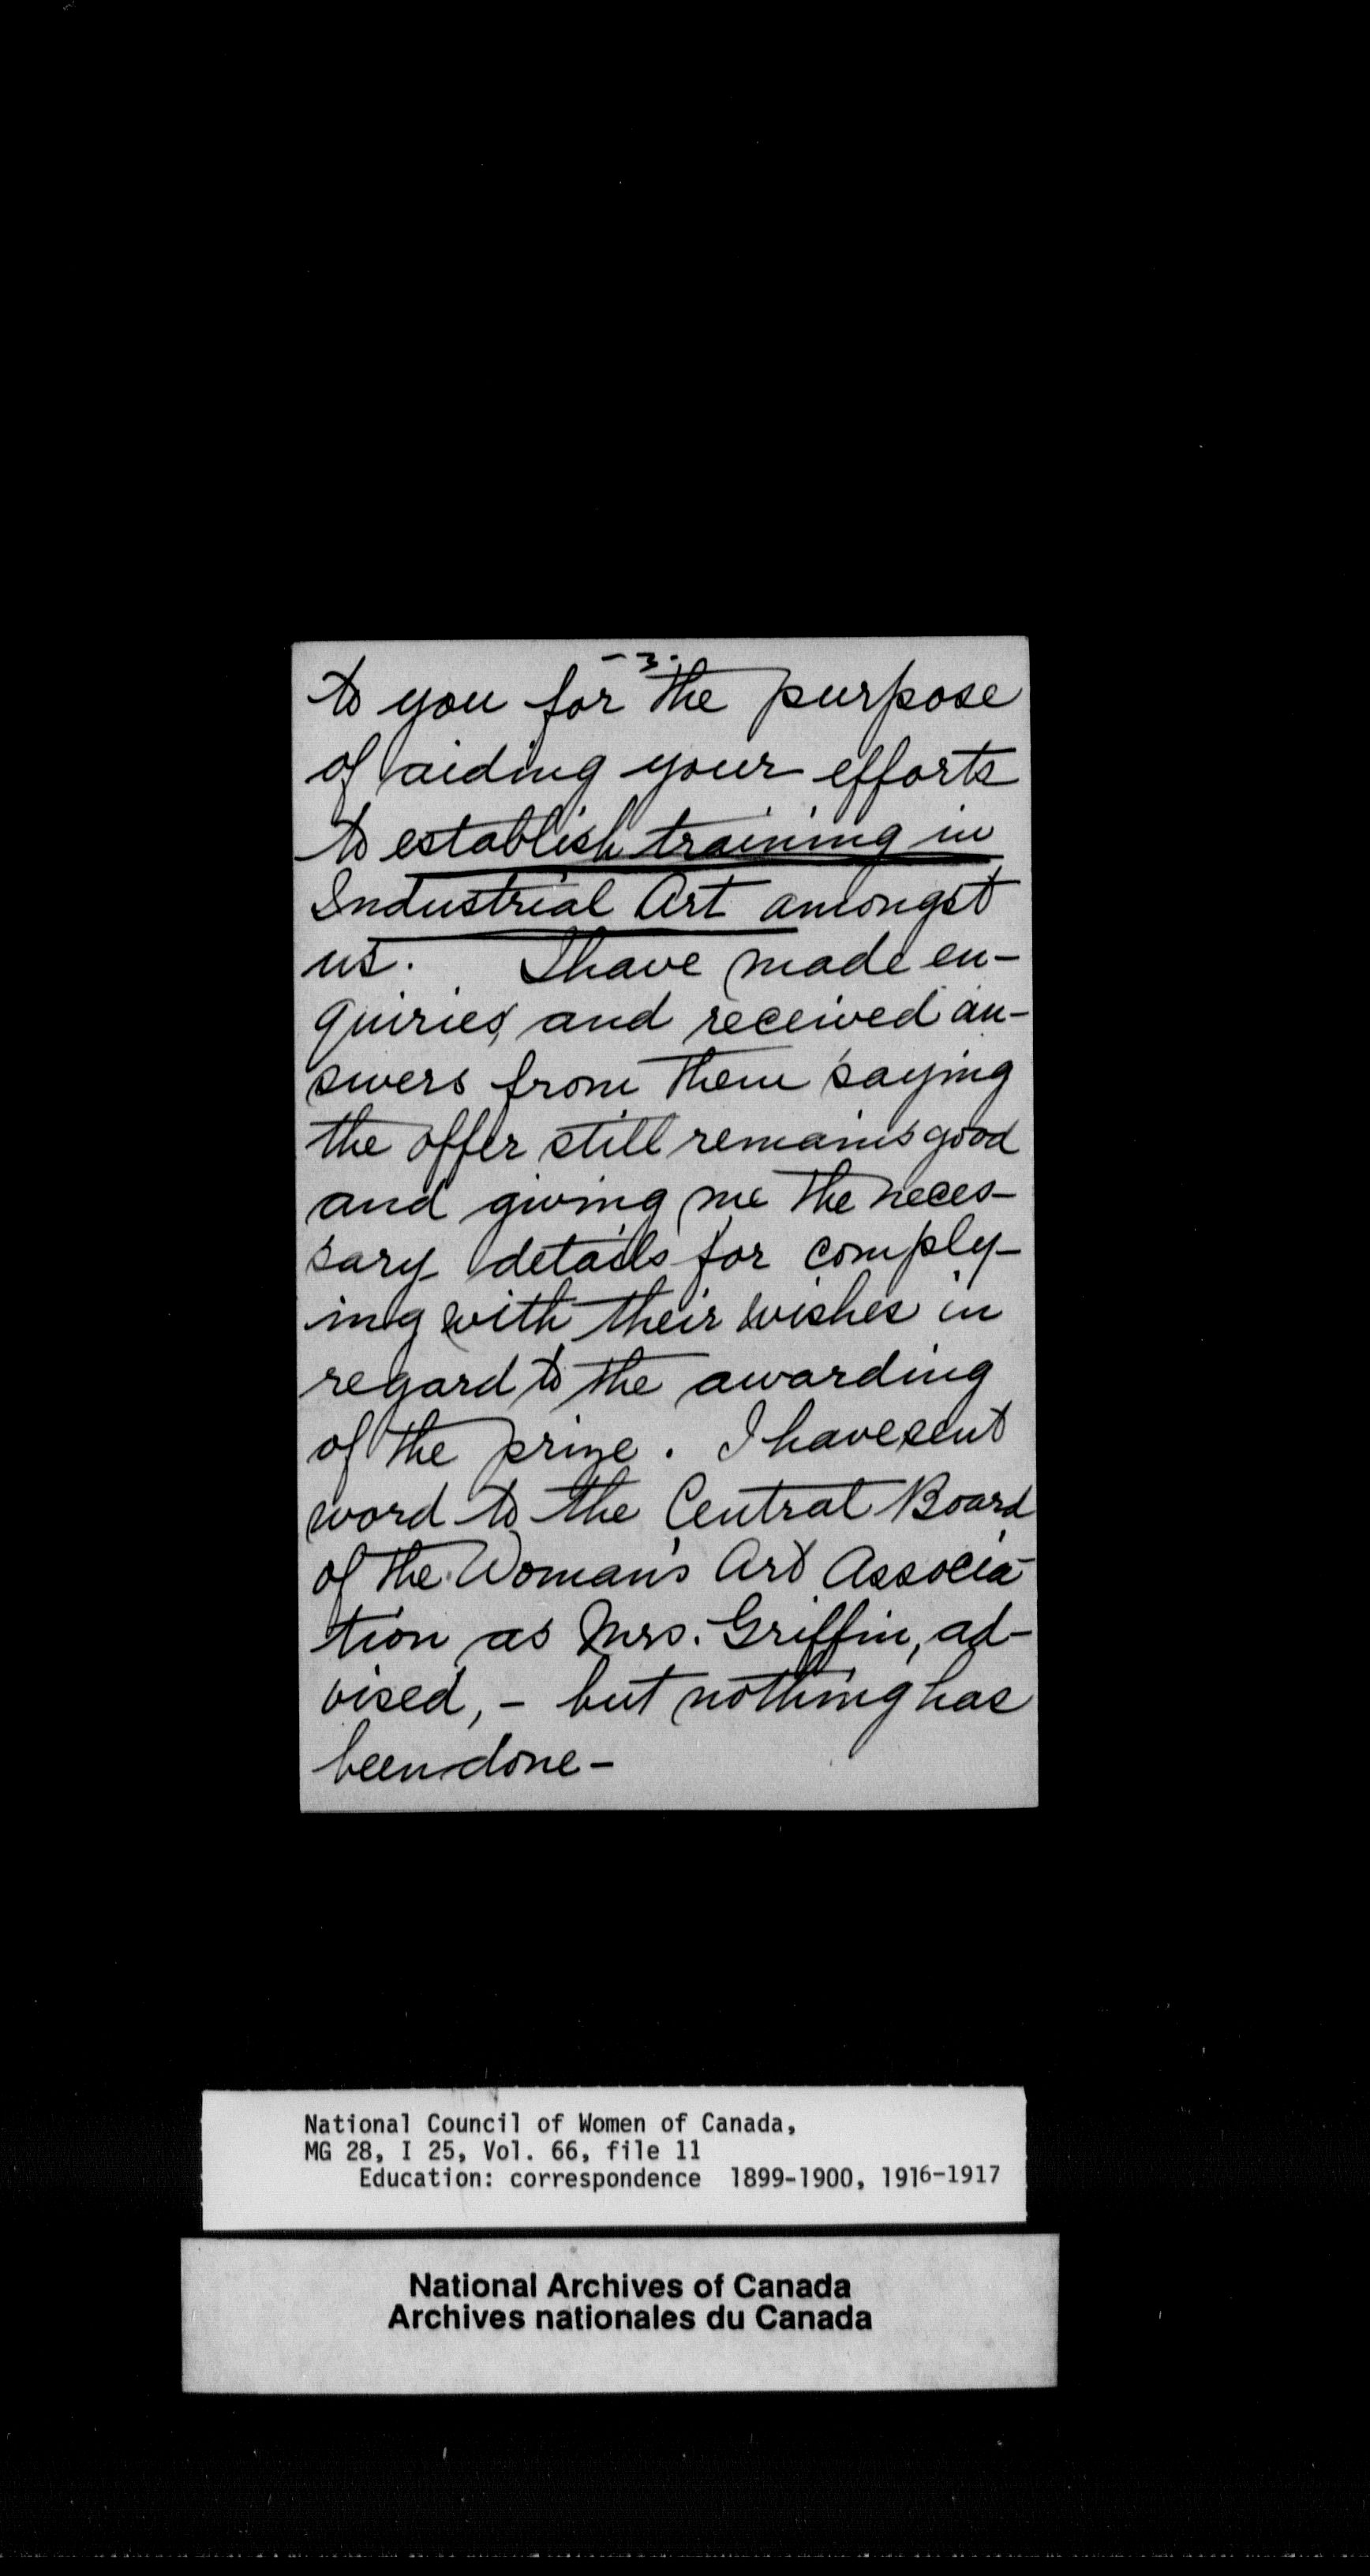 - 3 -
to you for the purpose
of aiding your efforts
to establish training in
Industrial Art amongst
us. I have made en-
quiries, and received an-
swers from them saying
the offer still remains good
and giving me the neces-
sary details for comply-
ing with their wishes in
regard to the awarding
of the prize. I have sent
word to the Central Board
of the Woman's Art Associa-
tion as Mrs. Griffin, ad-
vised, - but nothing has
been done -
National Council of Women of Canada,
MG 28, I 25, Vol. 66, file 11
Education: correspondence 1899-1900, 1916-1917
National Archives of Canada
Archives nationales du Canada